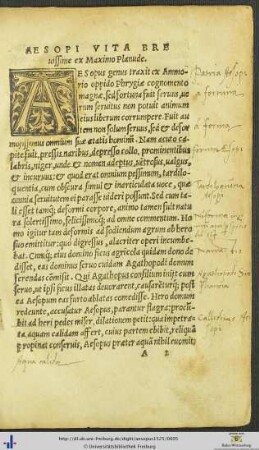 AESOPI VITA BRE
uissima ex Maximo Planude.
AESopus genus traxit ex Ammo-
rio oppido Phrygiæ cognomento
magnæ, sed fortuna fuit seruus, ue-
rum seruitus non potuit animum
eius liberum corrumpere. Fuit au
tem non solum seruus, sed & defor
missimus omnium suæ ætatis hominū. Nam acuto ca
pite fuit, pressis naribus, depresso collo, prominentibus
labris, niger, unde et nomen adeptus, uētrosus, ualgus,
& incuruus: & quod erat omnium pessimum, tardilo-
quentia, cum obscura simul & inarticulata uoce, quæ
omnia seruitutem ei parasse uideri possunt. Sed cum ta
li esset tamq; deformi corpore, animo tamen fuit natu
ra solertissimo, felicissimoq; ad omne commentum. Ho
mo igitur tam deformis ad fodiendum agrum ab hero
suo emittitur: quo digressus, alacriter operi incumbe-
bat. Cumq; eius domino ficus agricola quidam dono de
disset, eas dominus seruo cuidam Agathopodi domum
ferendas cōmisit. Qui Agathopus consilium iniit cum
seruo, ut ipsi ficus illatas deuorarent, causarēturq; post
ea Aesopum eas furto ablatas comedisse. Hero domum
redeunte, accusatur Aesopus, parantur flagra: procu-
bit ad heri pedes miser, dilationem petit: qua impetra-
ta, aquam calidam affert, cuius partem ebibit, reliquā
propinat conseruis, Aesopus præter aquā nihil euomit,
A 2
a forma
Aqua calida
http://dl.ub.uni-freiburg.de/diglit/aesopus1531/0005
© Universitätsbibliothek Freiburg